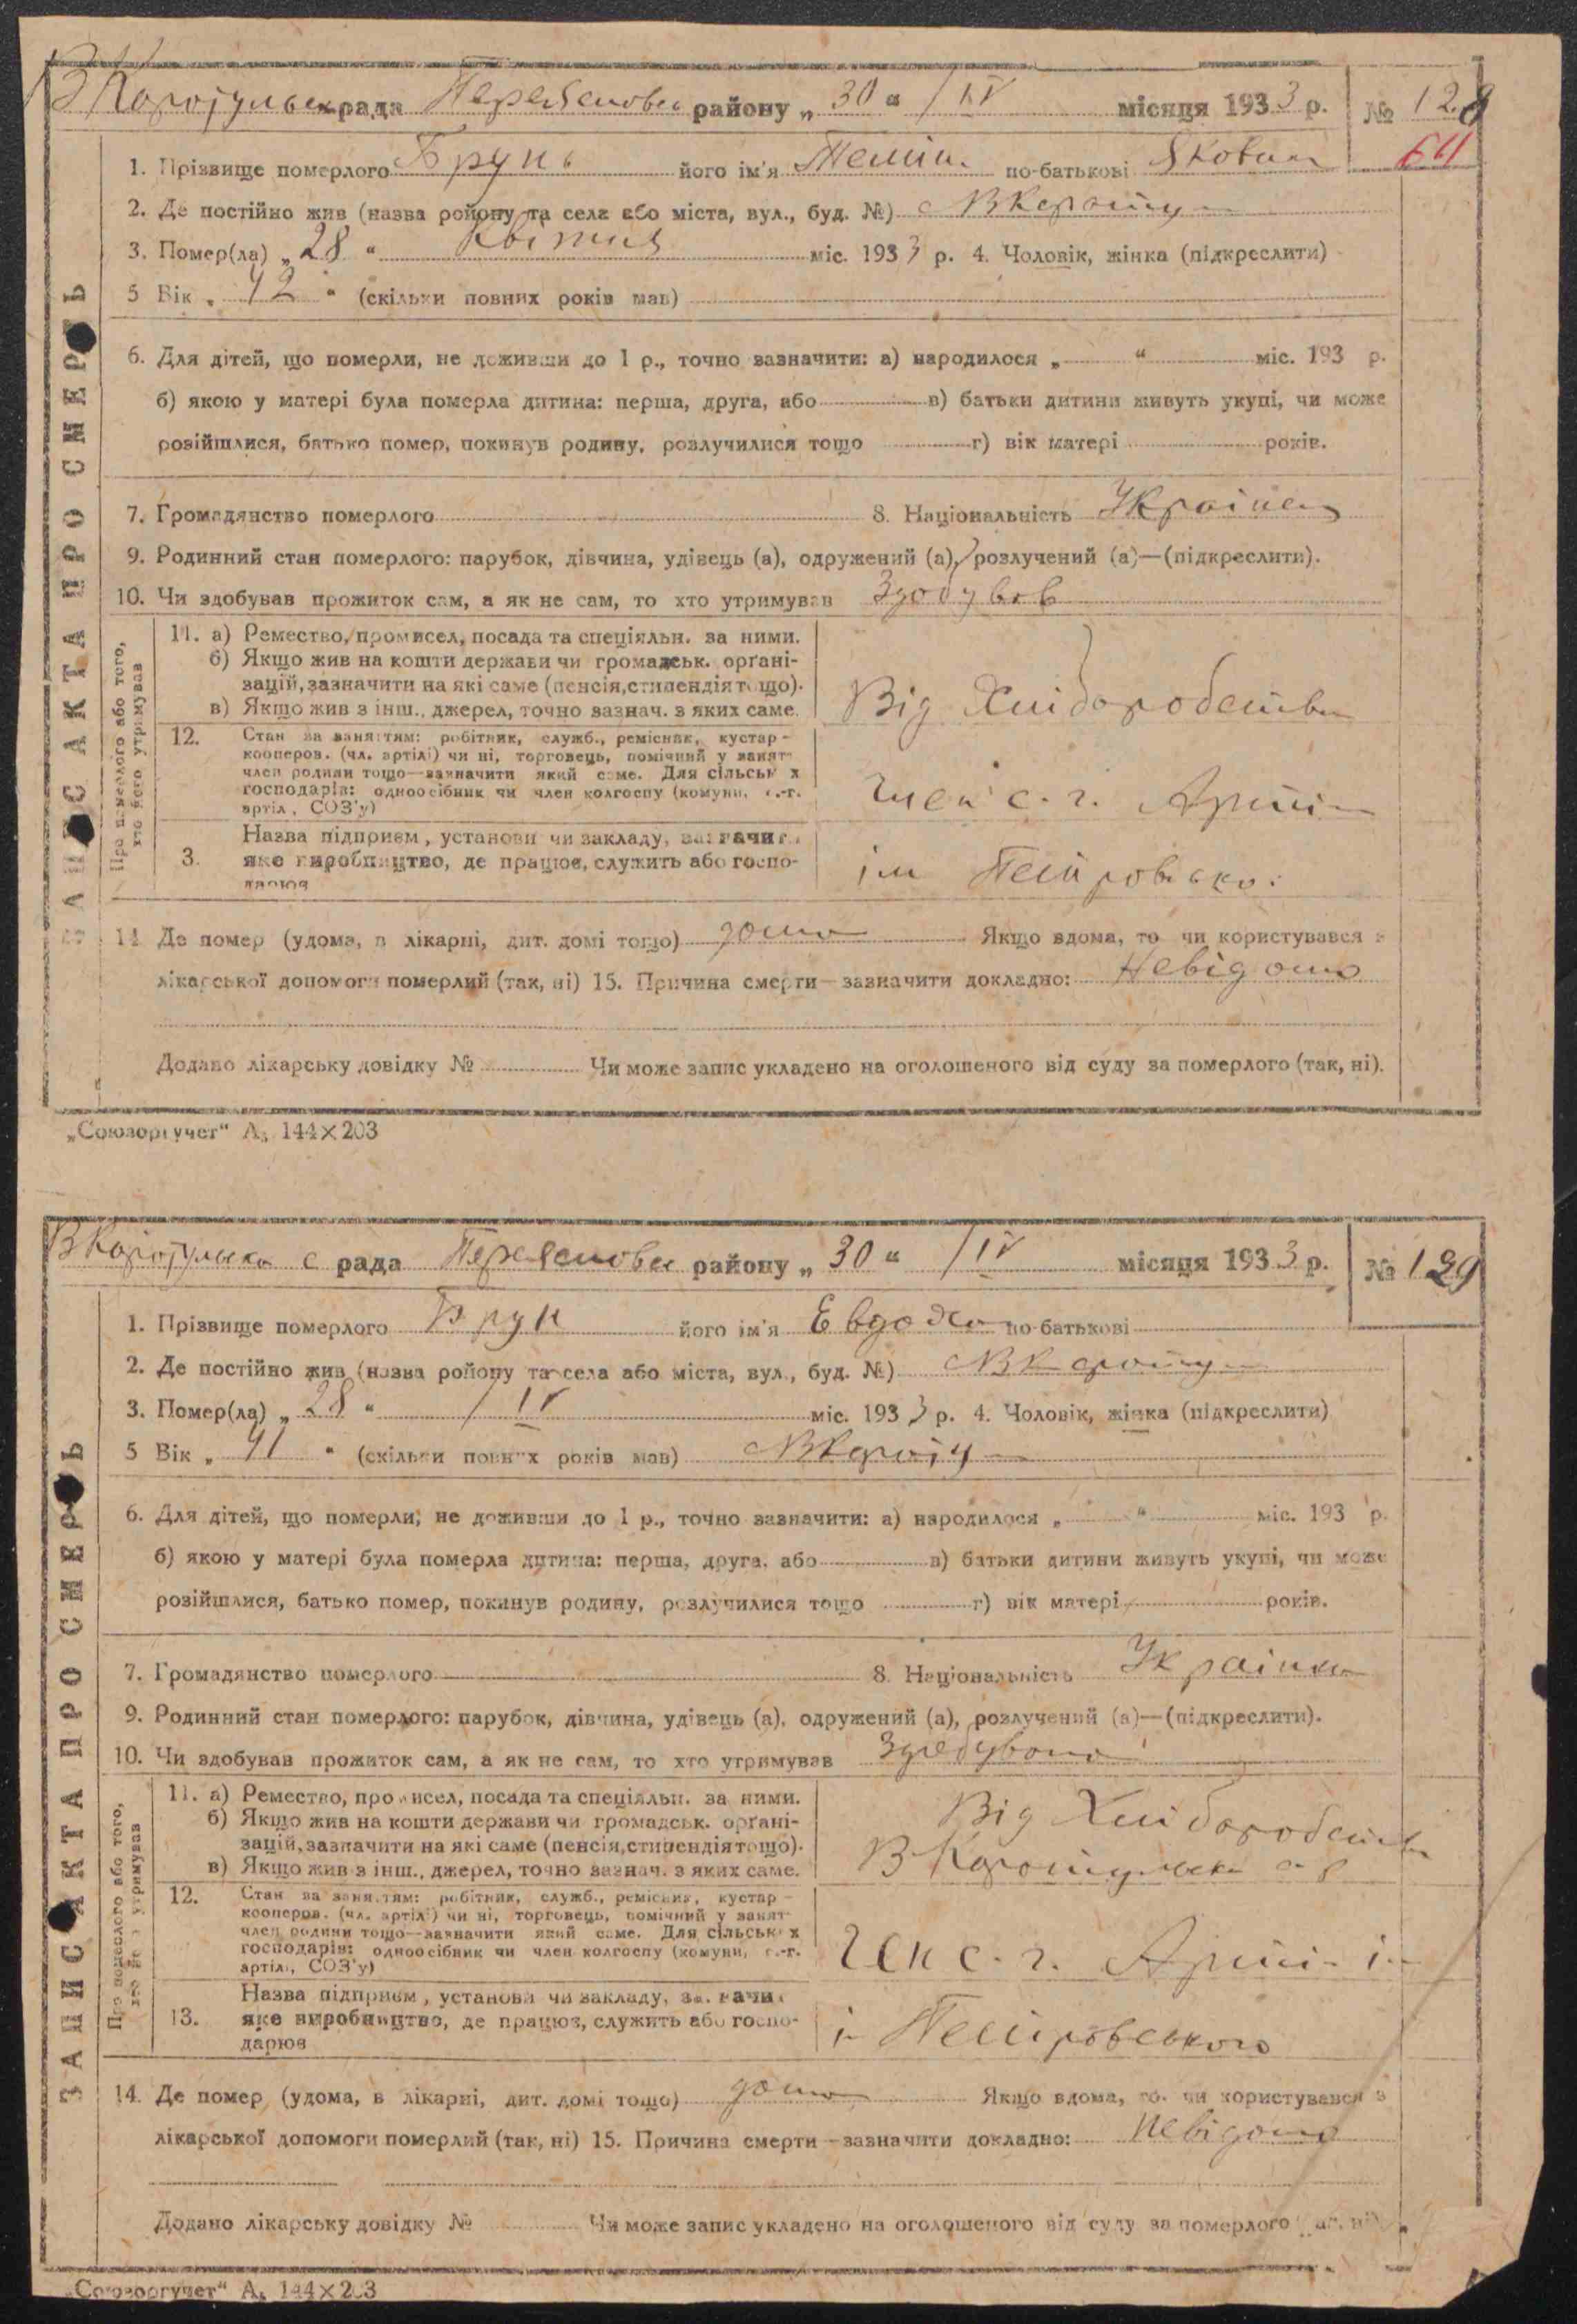 В Каратульська рада Переяславськ району „ 30 “ / IV місяця 1933 р. № 128
64
1. Прізвище померлого Брунь його ім'я по-батькові Якович
2. Де постійно жив (назва району та села або міста, вул., буд. №) В Каратуль
3. Помер(ла) „ 28 “ Квітня міс. 1933 р. 4. Чоловік, жінка (підкреслити)
5 Вік „ 42 “ (скільки повних років мав)
6. Для дітей, що померли, не доживши до 1 р., точно зазначити: а) народилося „ “ міс. 193 р.
б) якою у матері була померла дитина: перша, друга, або в) батьки дитини живуть укупі, чи може
розійшлися, батько помер, покинув родину, розлучилися тощо г) вік матері років.
7. Громадянство померлого 8. Національність Українец
9. Родинний стан померлого: парубок, дівчина, удівець (а), одружений (а), розлучений (а)—(підкреслити).
10. Чи здобував прожиток сам, а як не сам, то хто утримував Здобував
ЗАПИС АКТА ПРО СМЕРТЬ
Про померлого або того,
хто його утримував
11. а) Ремество, промисел, посада та спеціяльн. за ними.
б) Якщо жив на кошти держави чи громадськ. орґані-
зацій, зазначити на які саме (пенсія, стипендія тощо).
в) Якщо жив з інш., джерел, точно зазнач. з яких саме.
Від Хліборобства
12. Стан за заняттям: робітник, служб., ремісник, кустар-
кооперов. (чл. артілі) чи ні, торговець, помічний у занят
член родини тощо—зазначити який саме. Для сільськ х
господарів: одноосібник чи член колгоспу (комуни, с.-г.
артіл, СОЗ'у)
Член с. г. Артіл
Назва підприєм, установи чи закладу, зазначит
3. яке виробництво, де працює, служить або госпо-
дарює
ім Петровсько
14 Де помер (удома, в лікарні, дит. домі тощо) дома Якщо вдома, то чи користувався з
лікарської допомоги померлий (так, ні) 15. Причина смерти—зазначити докладно: Невідомо
Додано лікарську довідку № Чи може запис укладено на оголошеного від суду за померлого (так, ні).
„Союзоргучет“ А₅ 144×203
В Каратульська с рада Переяславськ району „ 30 “ / IV місяця 1933 р. № 129
1. Прізвище померлого Брун його ім'я Евдоха по-батькові
2. Де постійно жив (назва району та села або міста, вул., буд. №) В Каратуль
3. Помер(ла) „ 28 “ / IV міс. 1933 р. 4. Чоловік, жінка (підкреслити)
5 Вік „ 41 “ (скільки повних років мав) В Карату
6. Для дітей, що померли, не доживши до 1 р., точно зазначити: а) народилося „ “ міс. 193 р.
б) якою у матері була померла дитина: перша, друга, або в) батьки дитини живуть укупі, чи може
розійшлися, батько помер, покинув родину, розлучилися тощо г) вік матері років.
7. Громадянство померлого 8. Національність Українка
9. Родинний стан померлого: парубок, дівчина, удівець (а), одружений (а), розлучений (а)—(підкреслити).
10. Чи здобував прожиток сам, а як не сам, то хто утримував Здобувала
ЗАПИС АКТА ПРО СМЕРТЬ
Про померлого або того,
хто його утримував
11. а) Ремество, промисел, посада та спеціяльн. за ними.
б) Якщо жив на кошти держави чи громадськ. орґані-
зацій, зазначити на які саме (пенсія, стипендія тощо).
в) Якщо жив з інш., джерел, точно зазнач. з яких саме.
Від Хліборобств
В Каратульськ с р
12. Стан за заняттям: робітник, служб., ремісник, кустар-
кооперов. (чл. артілі) чи ні, торговець, помічний у занят
член родини тощо—зазначити який саме. Для сільськ х
господарів: одноосібник чи член колгоспу (комуни, с.-г.
артіл, СОЗ'у)
Член с. г. Артіл
Назва підприєм, установи чи закладу, зазначи
13. яке виробництво, де працює, служить або госпо-
дарює
і Петровського
14. Де помер (удома, в лікарні, дит. домі тощо) дома Якщо вдома, то чи користувався з
лікарської допомоги померлий (так, ні) 15. Причина смерти—зазначити докладно: Невідомо
Додано лікарську довідку № Чи може запис укладено на оголошеного від суду за померлого
„Союзоргучет“ А₅ 144×203